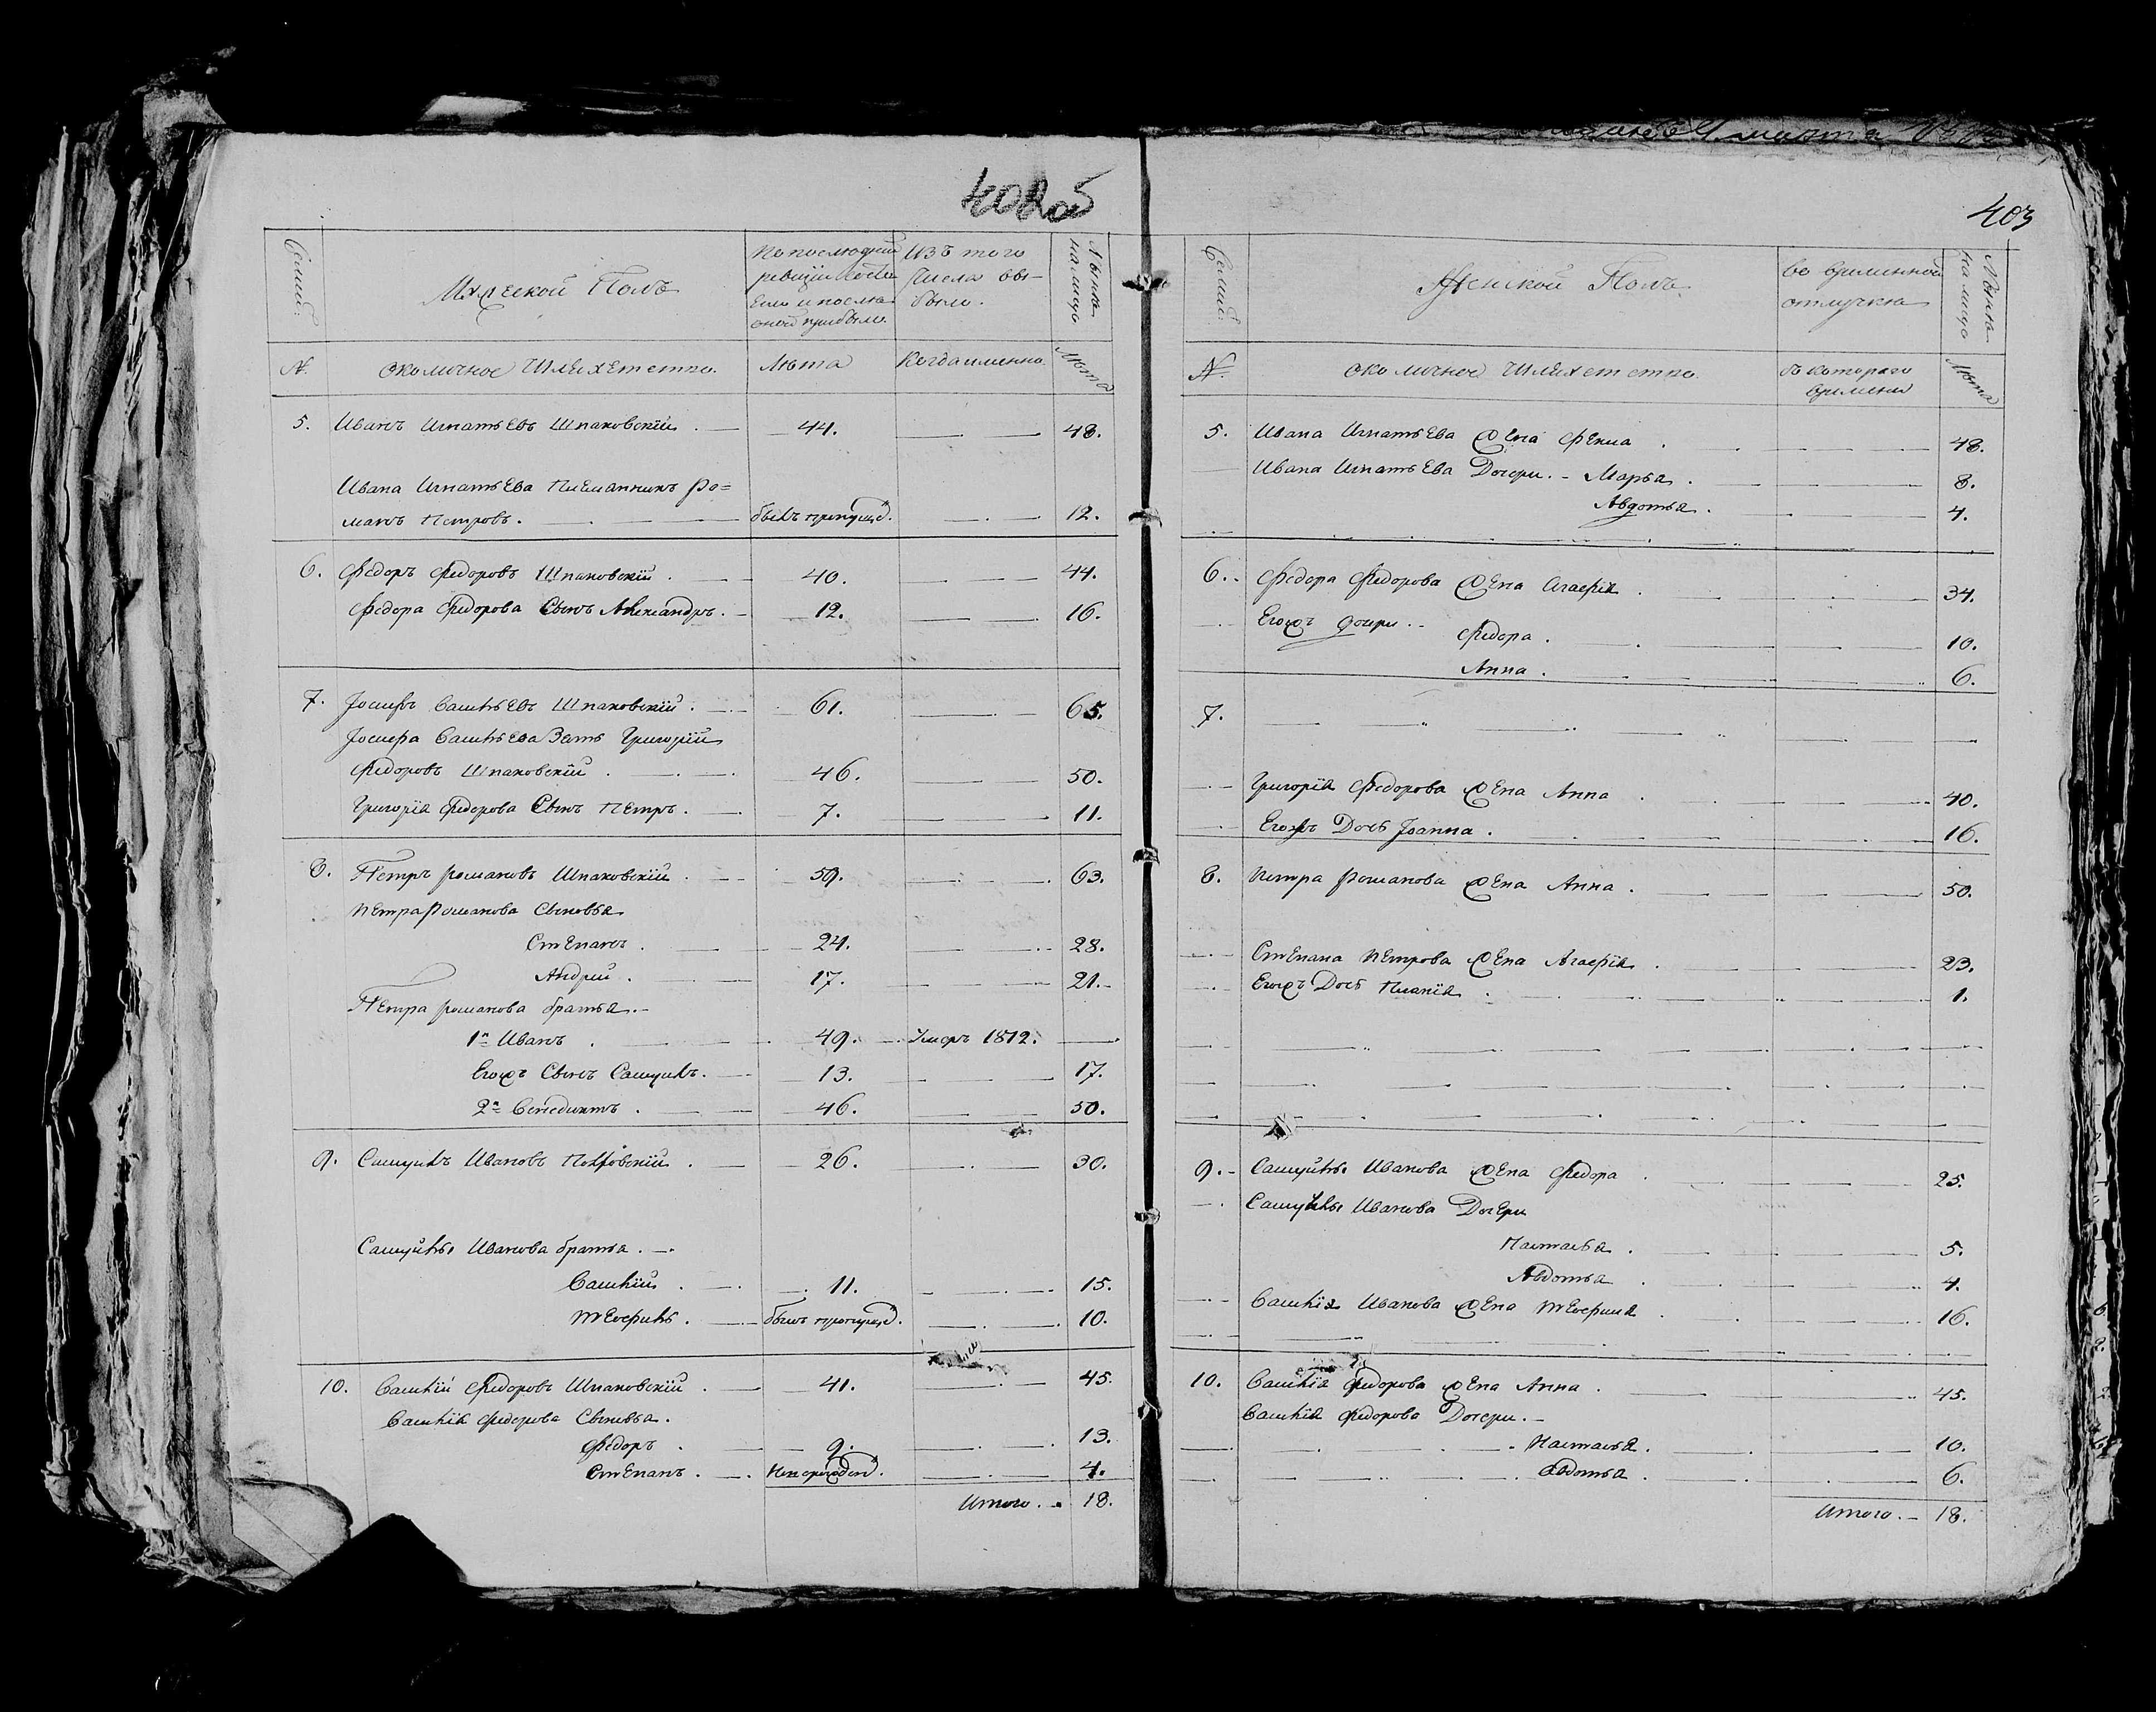 402об
Семьи.
Мужеской Полъ
По последней
ревизии состо
яло и после
оной прибыло.
Изъ того
числа вы-
было.
Ныне
на лицо
№.
околичное Шляхетство.
Лета
Когда именно.
Лета
5. Иванъ Игнатьевъ Шпаковскій . 44. 48.
Ивана Игнатьева Племянникъ Ро=
манъ Петровъ. былъ пропущ. 12.
6. Федоръ Федоровъ Шпаковскій . 40. 44.
Федора Федорова Сынъ Александръ. 12. 16.
7. Іосифъ Васильевъ Шпаковскій . 61. 65.
Іосифа Васильева Зять Григорій
Федоровъ Шпаковскій . 46. 50.
Григорія Федорова Сынъ Петръ. 7. 11.
8. Петръ Романовъ Шпаковскій . 59. 63.
Петра Романова Сыновья
Степанъ . 24. 28.
Андрей . 17. 21.
Петра Романова братья.
1й Иванъ . 49. Умеръ 1812.
Егожъ Сынъ Самуилъ. 13. 17.
2й Венедиктъ . 46. 50.
9. Самуилъ Ивановъ . 26. 30.
Самуйлы Иванова братья.
Василій . 11. 15.
былъ пропущ. 10.
10. Василій Федоровъ Шпаковскій . 41. 45.
Василія Федорова Сыновья.
Федоръ . 9. 13.
Степанъ . Новорожден. 4.
Итого. 18.
403
Семьи.
Женской Полъ.
во временной
отлучке
Ныне
на лицо
№.
околичное Шляхетство
съ котораго
времени
Лета
5. Ивана Игнатьева Жена Фекла . 48.
Ивана Игнатьева Дочери. - Марья . 8.
Авдотья . 4.
6. Федора Федорова Жена Агафія . 34.
Егожъ дочери
Федора . 10.
Анна . 6.
7.
Григорія Федорова Жена Анна . 40.
Егожъ Дочь Іоанна . 16.
8. Петра Романова Жена Анна . 50.
Степана Петрова Жена Агафія . 23.
Егожъ Дочь . 1.
9. Самуйлы Иванова Жена Федора . 25.
Самуйлы Иванова Дочери
Настасья . 5.
Авдотья . 4.
Василія Иванова Жена . 16.
10. Василія Федорова Жена Анна . 45.
Василія Федорова Дочери.
Настасья . 10.
Авдотья . 6.
Итого. 18.